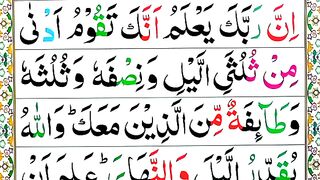 اِنَّ رَبَّكَ يَعْلَمُ اَنَّكَ تَقُوْمُ اَدْنٰى
مِنْ ثُلُثَيِ الَّيْلِ وَنِصْفَهٗ وَثُلُثَهٗ
وَطَآىِٕفَةٌ مِّنَ الَّذِيْنَ مَعَكَ ؕ وَاللّٰهُ
يُقَدِّرُ الَّيْلَ وَالنَّهَارَ ؕ عَلِمَ اَنْ